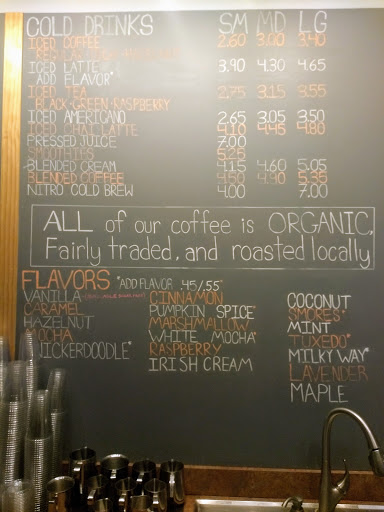 COLD DRINKS SM MD LG
ICED COFFEE 2.60 3.00 3.40
ICED LATTE 3.90 4.30 4.65
*ADD FLAVOR*
ICED TEA 2.75 3.15 3.55
BLACK-GREEN-RASPBERRY
ICED AMERICANO 2.65 3.05 3.50
ICED CHAI LATTE 4.10 4.45 4.80
PRESSED JUICE 7.00
SMOOTHIES 5.25
BLENDED CREAM 4.15 4.60 5.05
BLENDED COFFEE 4.50 4.90 5.35
NITRO COLD BREW 4.00 7.00
ALL of our coffee is ORGANIC,
Fairly traded, and roasted locally
FLAVORS *ADD FLAVOR .45/.55*
VANILLA CINNAMON COCONUT
CARAMEL PUMPKIN SPICE* SMORES*
HAZELNUT MARSHMALLOW MINT
MOCHA WHITE MOCHA* TUXEDO*
SNICKERDOODLE* RASPBERRY MILKY WAY*
IRISH CREAM LAVENDER
MAPLE